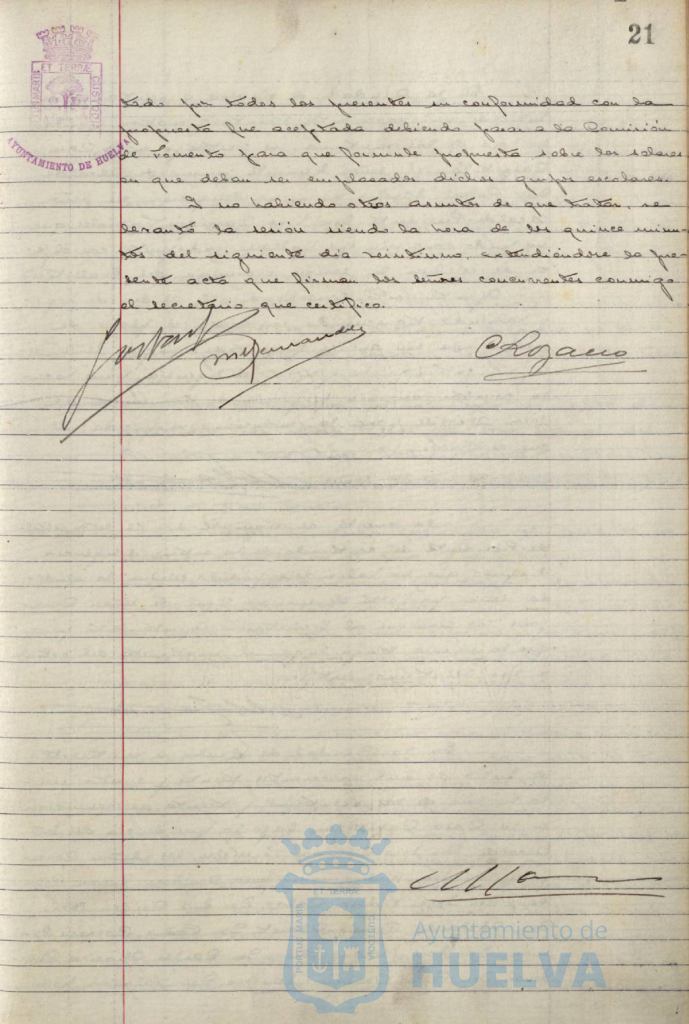 21
PORTUS MARIS ET TERRAE CUSTODIA
AYUNTAMIENTO DE HUELVA
tado por todos los presentes su conformidad con la
propuesta fue aceptada debiendo pasar a la Comisión
de Fomento para que formule propuesta sobre los solares
en que deban ser emplazados dichos grupos escolares.
Y no habiendo otros asuntos de que tratar, se
levantó la sesión siendo la hora de las quince minu-
tos del siguiente dia veintiuno, extendiéndose la pre-
sente acta que firman los señores concurrentes conmigo
el secretario que certifico.
M Hernandez
PORTUS MARIS ET TERRAE CUSTODIA
Ayuntamiento de
HUELVA